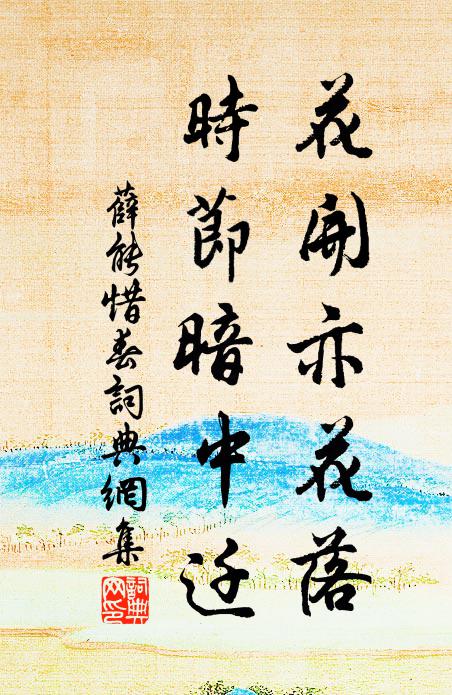 花開亦花落
時節暗中迁
薛能惜春詞典網集
詞典网印